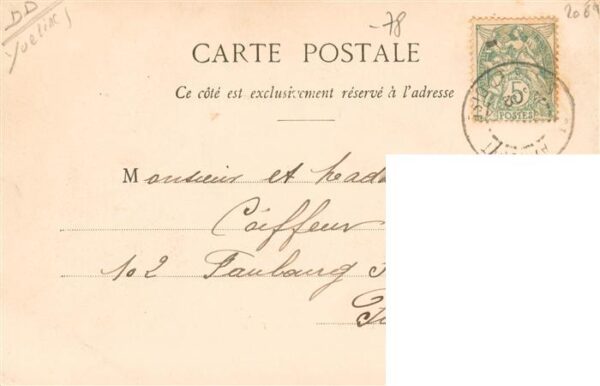 DD
Yvelines
-78
CARTE POSTALE
Ce côté est exclusivement réservé à l'adresse
5c
POSTES
Monsieur et Mad
Coiffeur
102 Faubourg